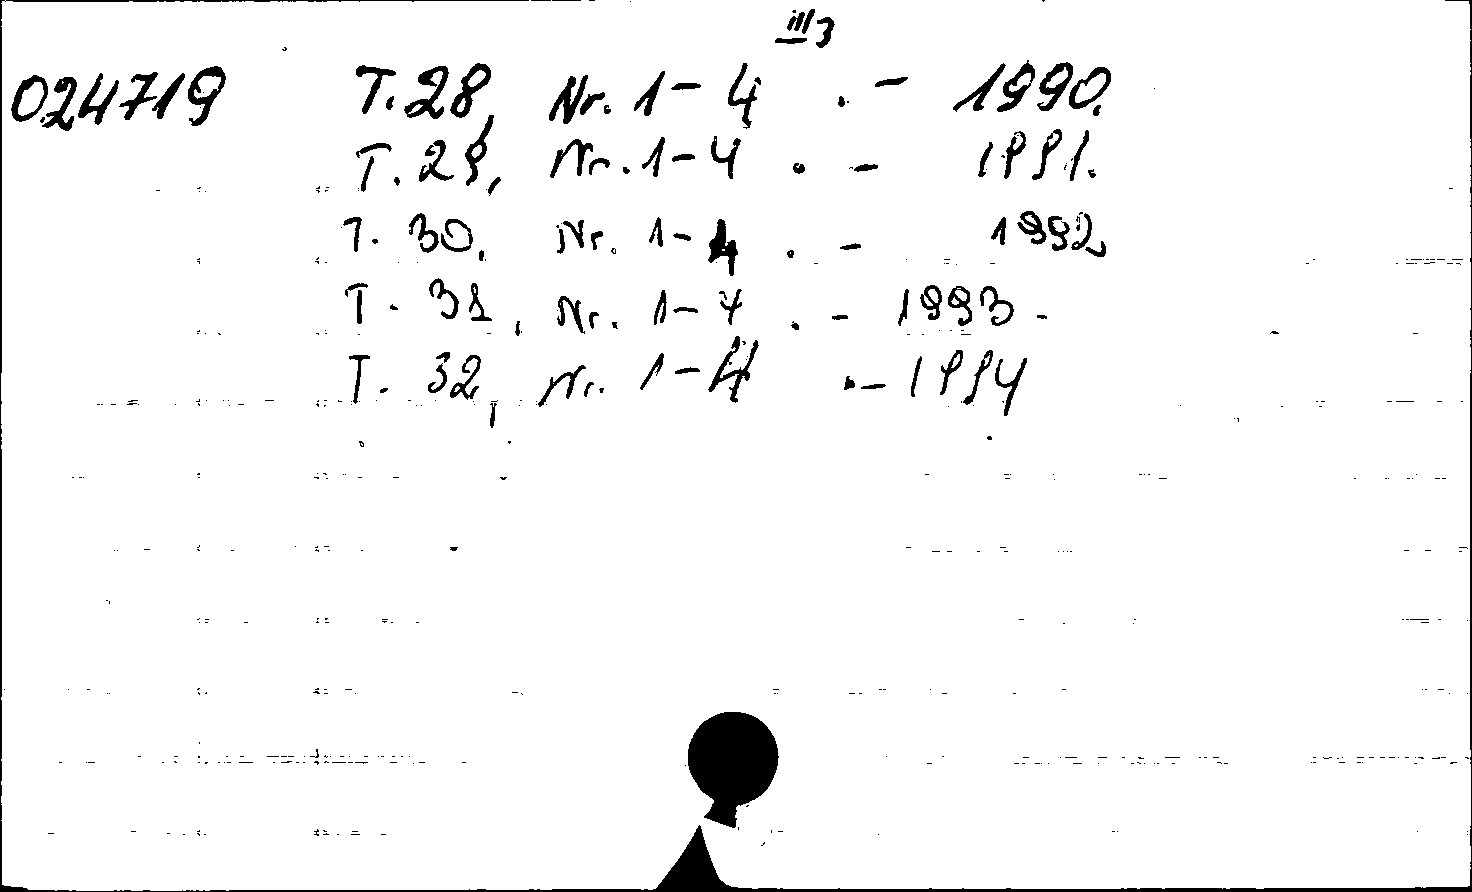 III 3
024719 T. 28, Nr. 1-4 . - 1990.
T. 29, Nr. 1-4 . - 1991.
T. 30, Nr. 1-4 . - 1992
T. 31, Nr. 1-4 . - 1993.
T. 32, Nr. 1-4 . - 1994